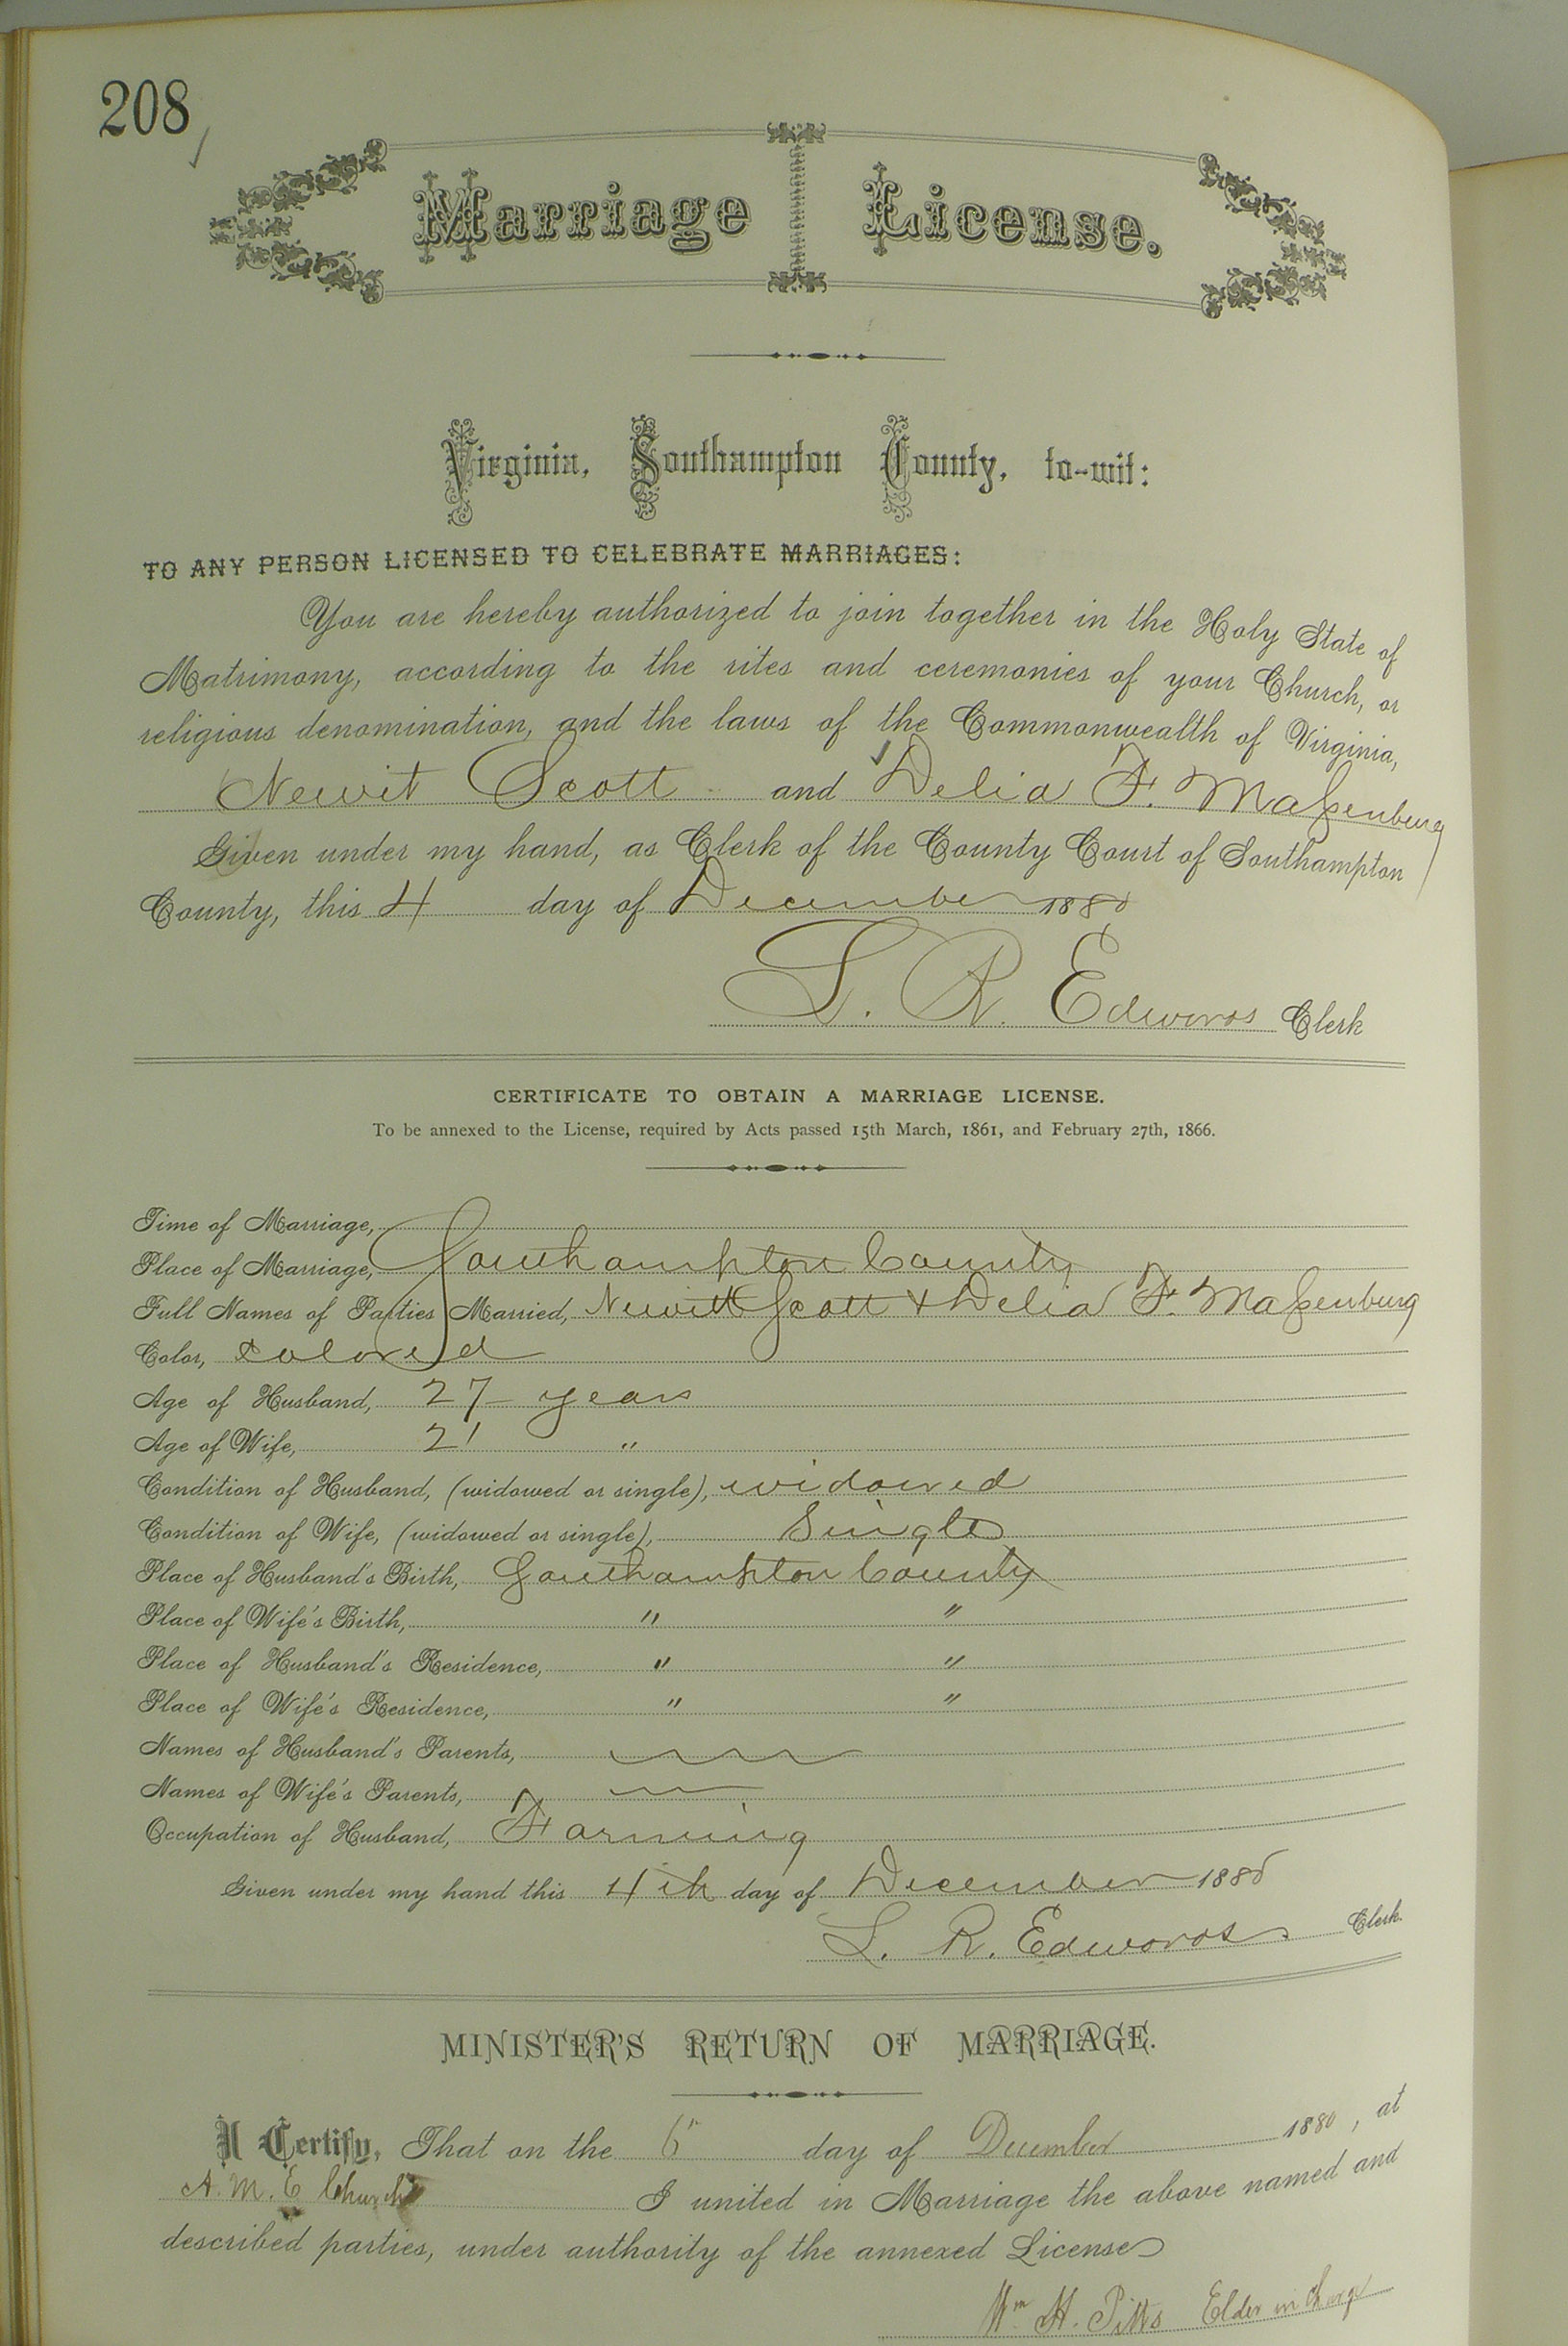 208
Marriage License.
Virginia, Southampton County, to-wit:
TO ANY PERSON LICENSED TO CELEBRATE MARRIAGES:
You are hereby authorized to join together in the Holy State of
Matrimony, according to the rites and ceremonies of your Church, or
religious denomination, and the laws of the Commonwealth of Virginia,
Newit Scott and Delia F. Maſsenburg
Given under my hand, as Clerk of the County Court of Southampton
County, this 4 day of December 1880
L. R. Edwards Clerk
CERTIFICATE TO OBTAIN A MARRIAGE LICENSE.
To be annexed to the License, required by Acts passed 15th March, 1861, and February 27th, 1866.
Time of Marriage,
Place of Marriage, Southampton County
Full Names of Parties Married, Newitt Scott & Delia F. Maſsenburg
Color, Colored
Age of Husband, 27 years
Age of Wife, 21 "
Condition of Husband, (widowed or single), widowed
Condition of Wife, (widowed or single), Single
Place of Husband's Birth, Southampton County
Place of Wife's Birth, " "
Place of Husband's Residence, " "
Place of Wife's Residence, " "
Names of Husband's Parents,
Names of Wife's Parents,
Occupation of Husband, Farming
Given under my hand this 4th day of December 1880
L. R. Edwards Clerk.
MINISTER'S RETURN OF MARRIAGE.
I Certify, That on the 6" day of December 1880, at
A. M. E Church I united in Marriage the above named and
described parties, under authority of the annexed License
Wm H. Pitts Elder in Charge